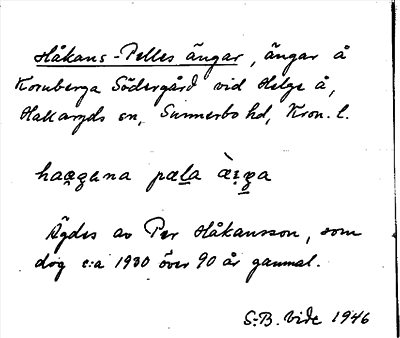 Håkans-Pelles ängar, ängar å
Kornberga Södergård vid Helge å,
Hallaryds sn, Sunnerbo hd, Kron. l.
Ägdes av Per Håkansson, som
dog c:a 1930 över 90 år gammal.
S.B. Vide 1946